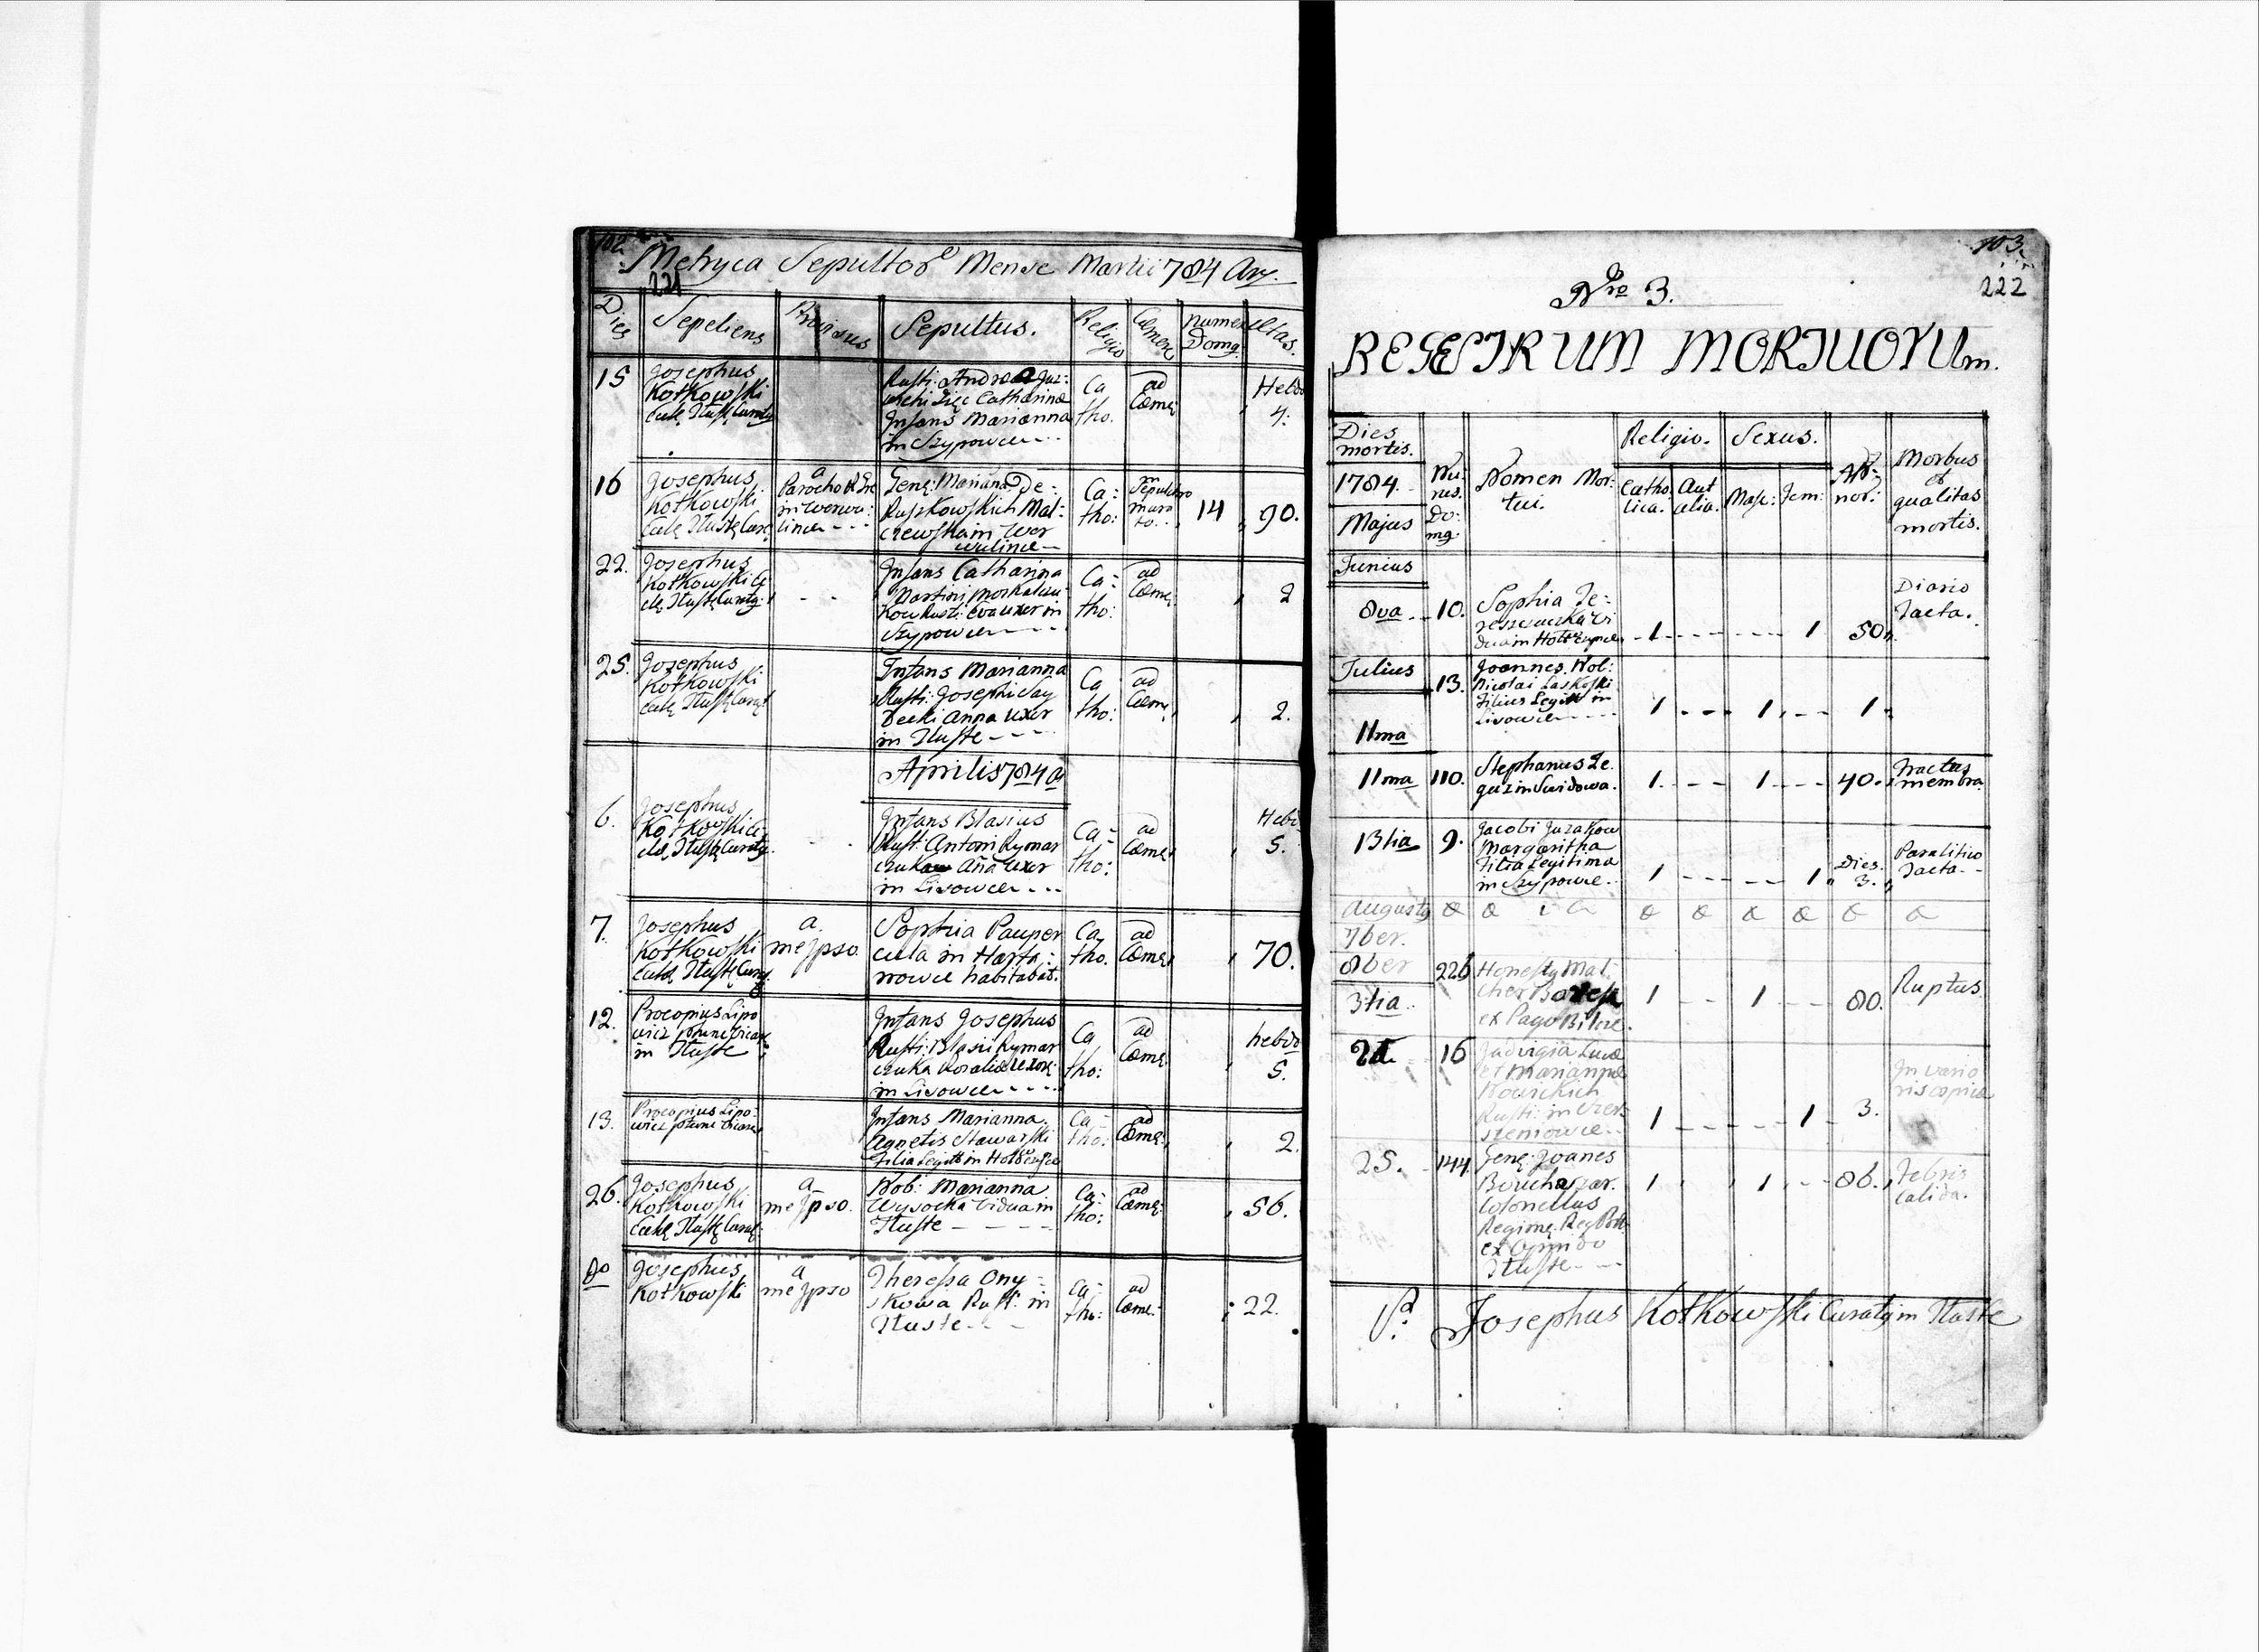 102.
221
Metryca Sepultor Mense Martii 784 Ao.
Dies
Sepeliens
Provisus
Sepultus.
Religio
Cæmen
numer
Domg.
Ætas.
15
Josephus
Kotkowski
Eccle Tłuste Curatg
Rusti: Andreæ
Catharina
Infans Marianna
in Szypowce
Ca
tho.
ad
Cæme
Hebdo
4.
16
Josephus
Kotkowski
Eccle Tłuste Cura
a
Parocho R. Gre
in Worwu:
lince - - -
Gene: Mariana De:
Ruszkowskich Mal:
czewska in Wor
wulince
Ca:
tho:
in
Sepulchro
mura
to
14
90.
22.
Josephus
Kotkowski
Tłuste Curatg
- -
Infans Catharina
Martini
Rusti: Eva uxor in
Szypowce
Ca:
tho:
ad
Cæme
2
25.
Josephus
Kotkowski
Eccle Tłuste Curat
Infans Marianna
Rusti: Josephi Say
Decki Anna uxor
in Tłuste - - -
Ca
tho:
ad
Cæme
2.
Aprilis 784 a
6.
Josephus
Kotkowski
Tłuste Curatg.
- -
Infans Blasius
Rust: Antoni Rymar
czuka Aña uxor
in Lisowce - - -
Ca:
tho:
ad
Cæme
Hebd
5.
7.
Josephus
Kotkowski
Eccle Tłuste Curatg
a.
me Jpso.
Sophia Pauper
cula in Harta:
nowce habitabat.
Ca,
tho.
ad
Cæme
70.
12.
Procopius Lipo
wicz
in Tłuste
Infans Josephus
Rusti: Blasii Rymar
czuka Rosalia uxore
in Lisowce - - - -
Ca,
tho:
ad
Cæme
hebdo
5.
13.
Procopius Lipo:
wicz
Infans Marianna
Agnetis Stawarski
Filia Legitt: in
Ca -
tho:
ad
Cæme:
2.
26.
Josephus
Kotkowski
Eccle Tłuste Curat:
a
me Jpso.
Nob: Marianna
Wysocka Vidua in
Tłuste - - - -
Ca:
tho:
ad
Cæme:
56.
Do
Josephus
Kotkowski
a
me Jpso
Theressa Ony -
skowa Rust: in
Tłuste - - -
Ca:
tho:
ad
Cæme:
22.
103.
222
Nro 3.
REGESTRUM MORTUORUm.
Dies
mortis.
1784.
Majus
Nu:
rus.
Do:
mg.
Nomen Mor:
tui.
Religio.
Catho.
lica.
Aut
alia.
Sexus.
Masc:
Fem:
An-
nor:
Morbus
et
qualitas
mortis.
Junius
8va
10.
Sophia
dua in
1
1
50
Diario
Tacta.
Julius
11ma
13.
Joannes. Nob:
Nicolai Laskoski
Filius Legitt: in
Lisowce - - - -
1
1
1
11ma
110.
Stephanus Ze
guz in Swidowa.
1.
1
40.
Fractus
membra.
13tia
9.
Jacobi Juzakow
Margaritha
Filia Legitima
in Szypowce.
1
1
Dies
3.
Paralitico
Tacta - -
Augustg
7ber.
8ber
3tia
226
Honestg Mal:
cher
ex Pago Bilcze.
1
1
80.
Ruptus
16
Jadvigia Lucæ
et Mariannæ
Nowickich
Rusti: in Czer:
szeniowce - -
1
1
3.
In vario
ris copia
25.
144.
Gene: Joanes
Colonellus
Regime: Reg
ex Oppido
Tłuste - -
1
1
86.
Febris
Calida.
Josephus Kotkowski Curatg in Tłuste